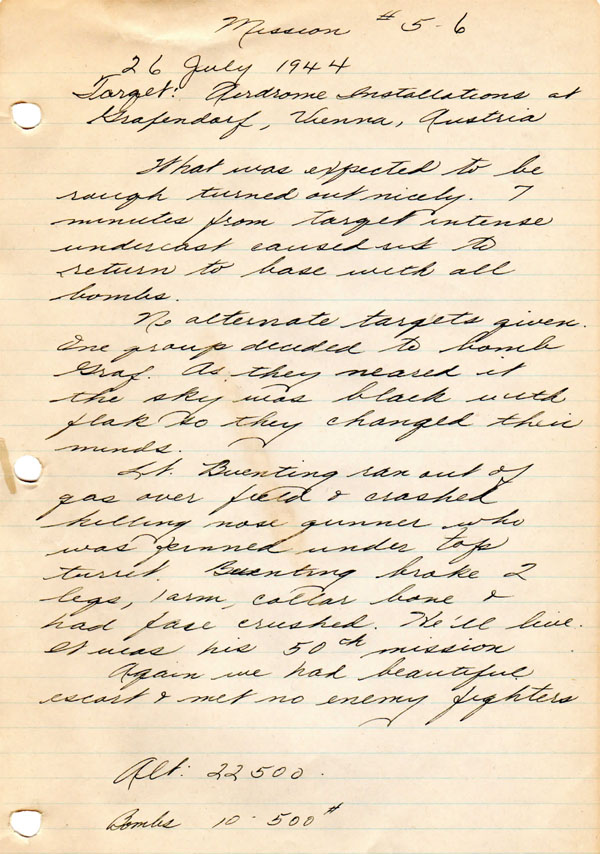 Mission # 5-6
26 July 1944
Target: Airdrome Installations at
Grafendorf, Vienna, Austria
What was expected to be
rough turned out nicely. 7
minutes from target intense
undercast caused us to
return to base with all
bombs.
No alternate targets given.
One group decided to bomb
Graf. As they neared it
the sky was black with
flak so they changed their
minds.
Lt. Buenting ran out of
gas over field & crashed
killing nose gunner who
was pinned under top
turret. Buenting broke 2
legs, 1 arm, collar bone &
had face crushed. He'll live.
It was his 50th mission
Again we had beautiful
escort & met no enemy fighters
Alt: 22500.
Bombs 10-500#